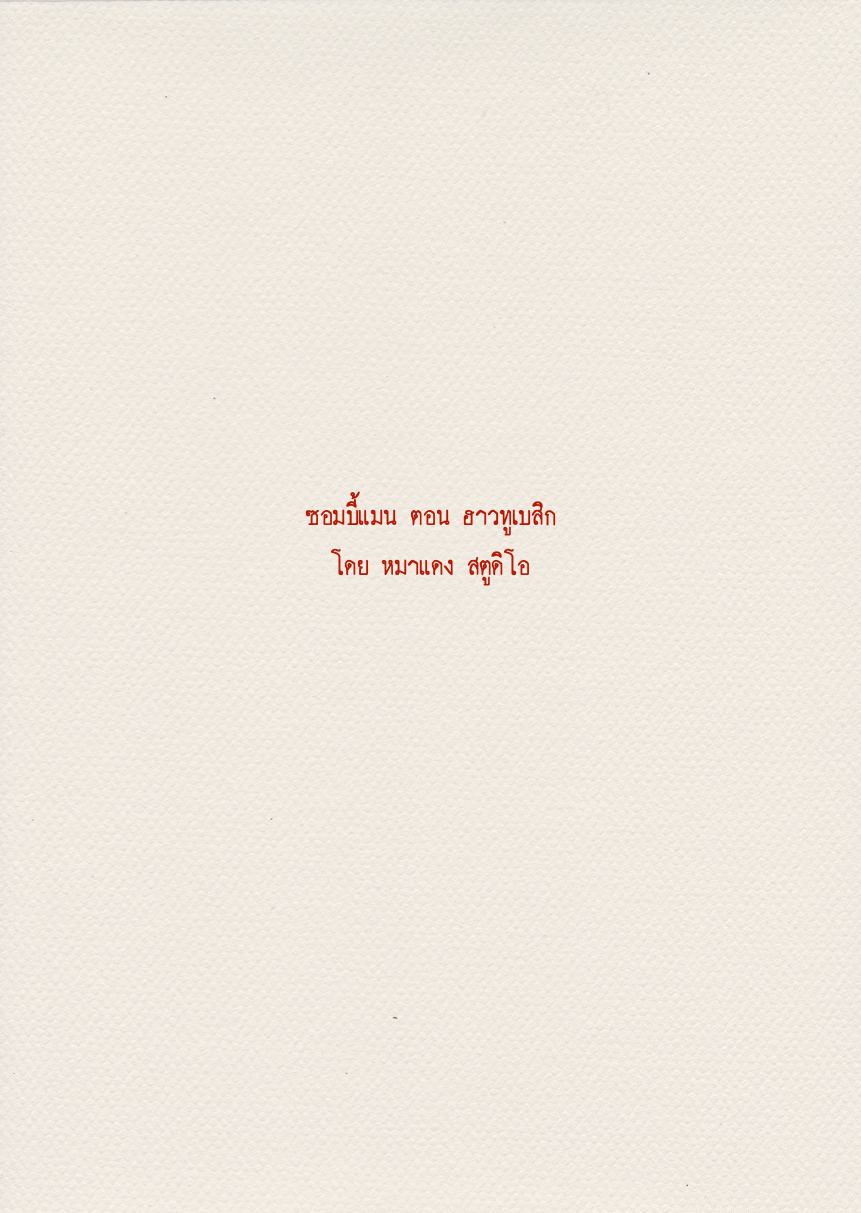 ซอมบี้แมน ตอน ฮาวทูเบสิก
โดย หมาแดง สตูดิโอ